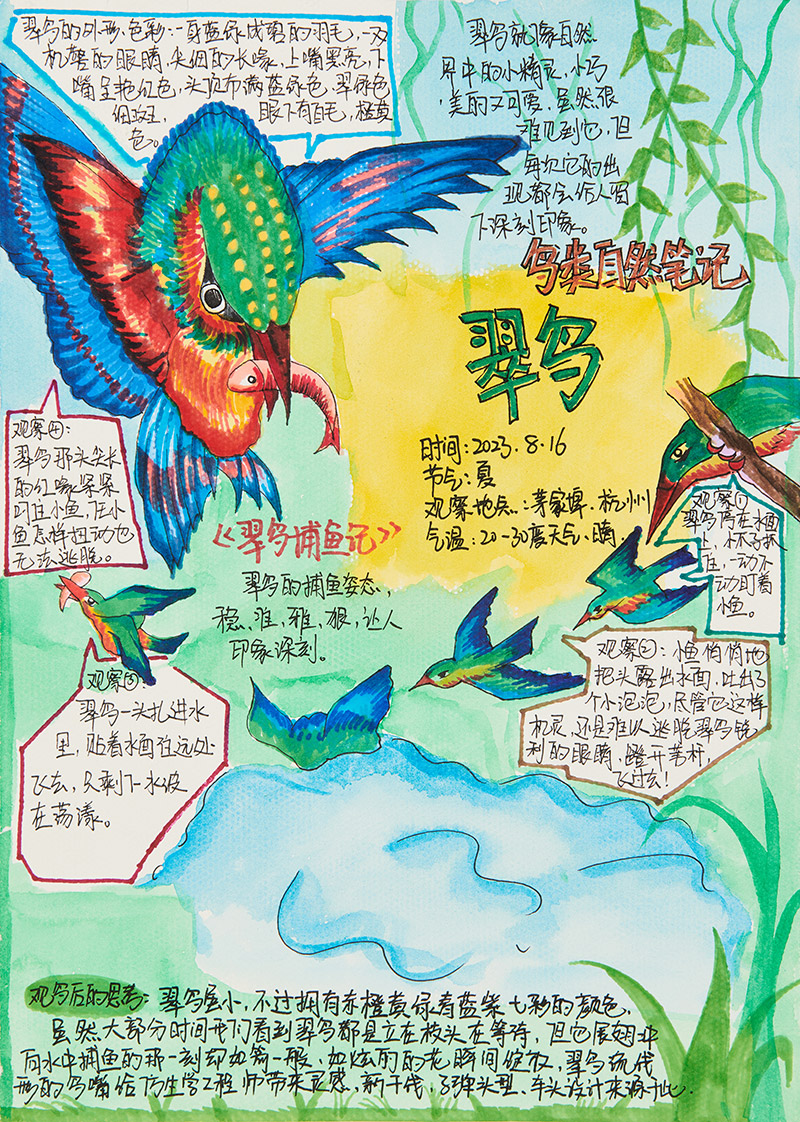 翠鸟的外形、色彩:一身蓝绿成翡的羽毛,一双
机警的眼睛,尖细的长喙,上嘴黑亮,下
嘴呈艳红色,头顶布满蓝绿色、翠绿色
细斑,眼下有白毛,橙黄
色。
翠鸟就像自然
界中的小精灵,小巧
美的又可爱,虽然很
难见到它,但
每次它的出
现都会给人留
下深刻印象。
鸟类自然笔记
翠鸟
时间:2023.8.16
节气:夏
观察地点:茅家埠.杭州
气温:20-30度天气:晴.
观察④:
翠鸟那头尖长
的红喙紧紧
叼住小鱼,任小
鱼怎样扭动也
无法逃脱。
《翠鸟捕鱼记》
翠鸟的捕鱼姿态,
稳、准、雅、狠,让人
印象深刻。
观察①
翠鸟停在水面
上,小爪子抓
住,一动不
动盯着
小鱼。
观察②:小鱼悄悄地
把头露出水面,吐出了
个小泡泡,尽管它这样
机灵,还是难以逃脱翠鸟锐
利的眼睛,蹬开苇杆,
飞过去!
观察③:
翠鸟一头扎进水
里,贴着水面往远处
飞去,只剩下水波
在荡漾。
观鸟后的思考:翠鸟虽小,不过拥有赤橙黄绿青蓝紫七彩的颜色,
虽然大部分时间我们看到翠鸟都是立在枝头在等待,但它展翅冲
向水中捕鱼的那一刻却如箭一般、如炫丽的花瞬间绽放,翠鸟流线
形的鸟嘴给仿生学工程师带来灵感,新干线,子弹头型、车头设计来源于此.